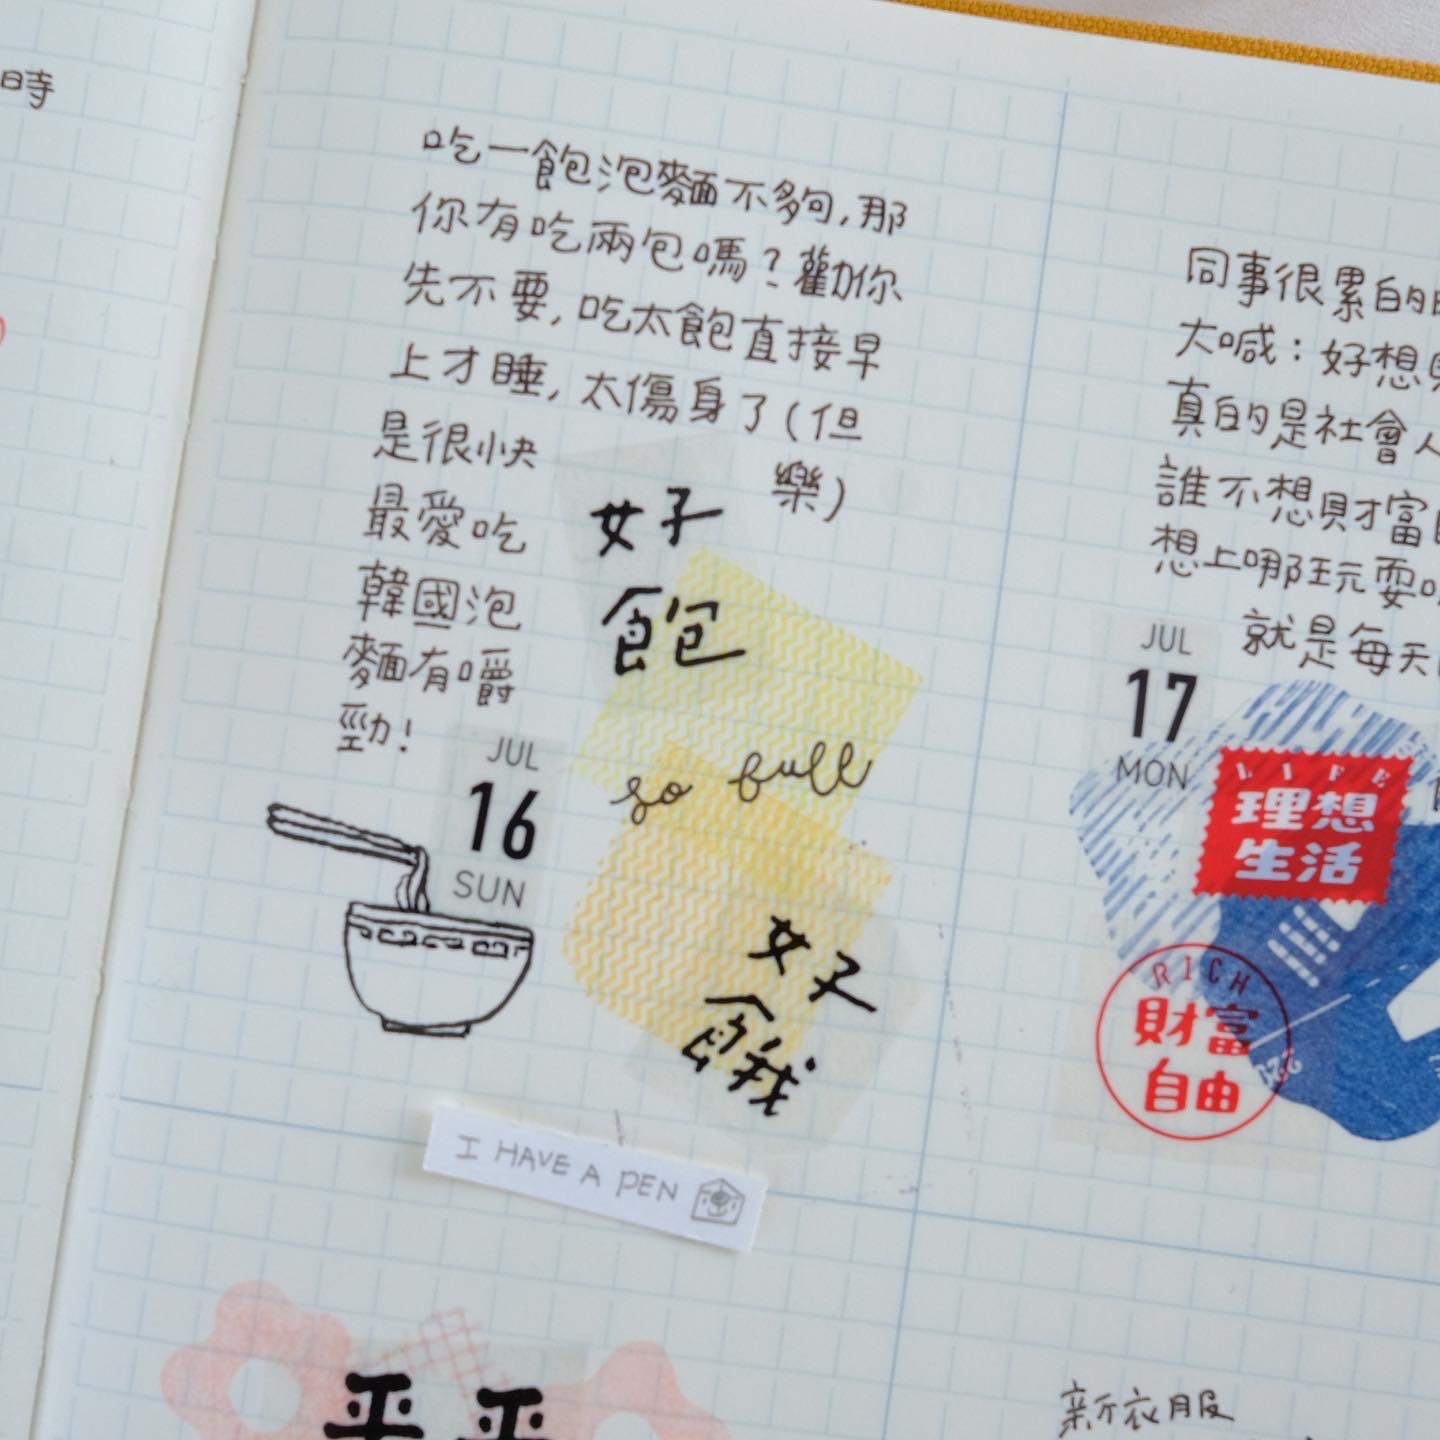 時
吃一飽泡麵不夠,那
你有吃兩包嗎?勸你
先不要,吃太飽直接早
上才睡,太傷身了(但
是很快
樂)
最愛吃
韓國泡
麵有嚼
勁!
好
飽
so full
好
餓
JUL
16
SUN
I HAVE A PEN
同事很累的
大喊:好想
真的是社會人
誰不想財富
想上哪玩耍
就是每天
JUL
17
MON
LIFE
理想
生活
RICH
財富
自由
平平
新衣服